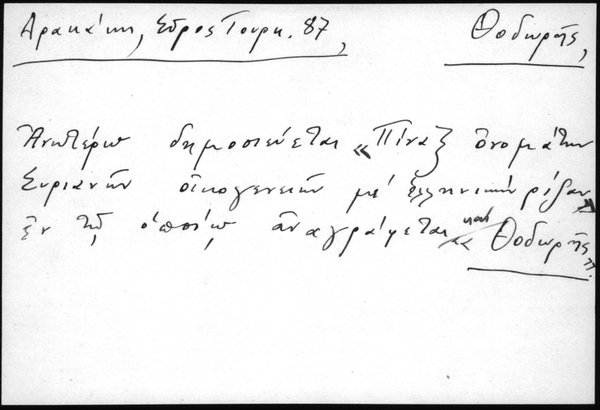 Αρακάκη, Σύρος Τουρκ. 87, Θοδωρῆς,
Ἀνωτέρω δημοσιεύεται «Πίναξ ὀνομάτων
Συριανῶν οἰκογενειῶν μέ ἑλληνικήν ρίζαν»
ἐν τῷ ὁποίῳ ἀναγράφεται καί «Θοδωρῆς».